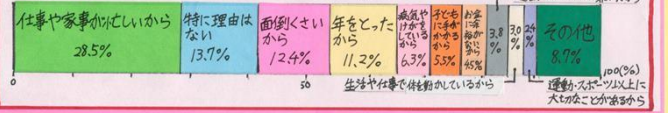 仕事や家事が忙しいから
28.5%
特に理由は
ない
13.7%
面倒くさい
から
12.4%
年をとった
から
11.2%
病気や
けがを
している
から
6.3%
子どもに
手が
かかる
から
5.5%
お金に
余裕が
ないから
4.5%
3.8%
3.0%
2.4%
その他
8.7%
0
50
100(%)
生活や仕事で体を動かしているから
運動・スポーツ以上に
大切なことがあるから